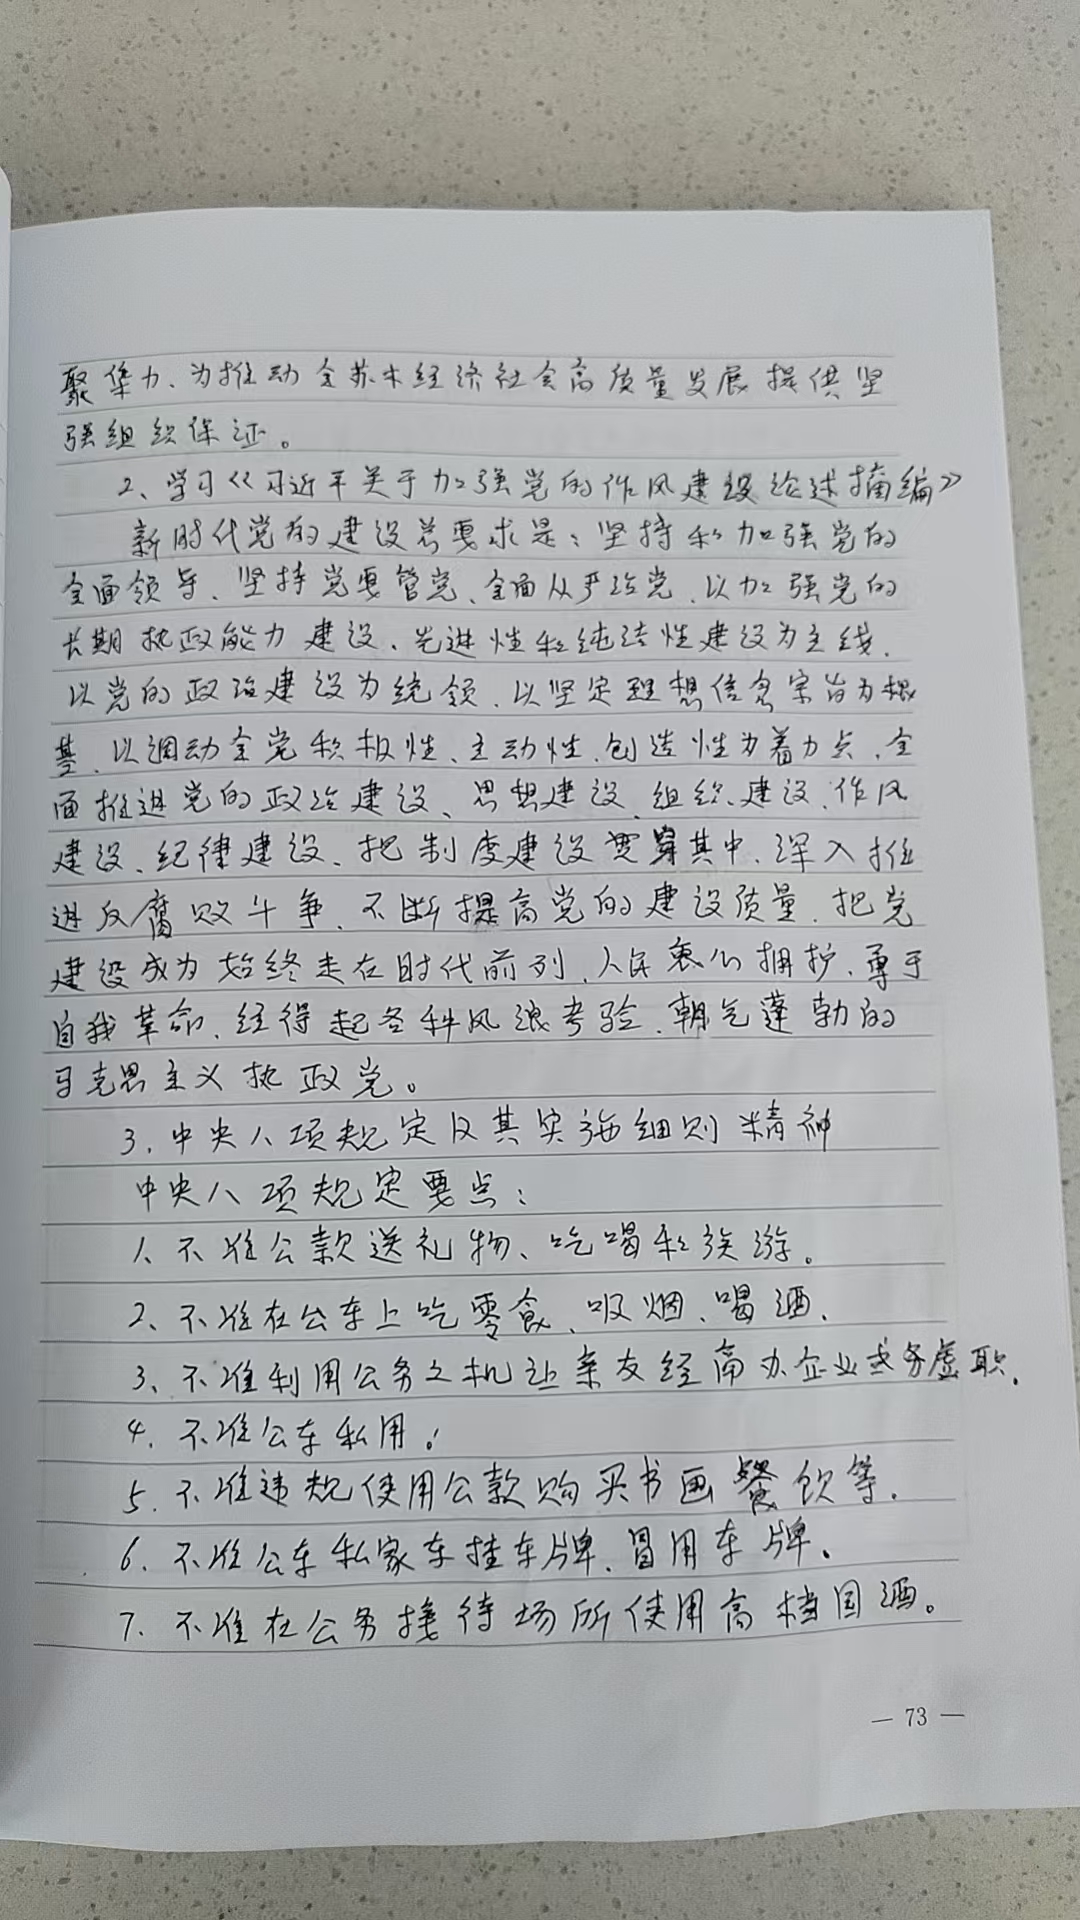 聚集力、为推动全苏木经济社会高质量发展提供坚
强组织保证。
2、学习《习近平关于加强党的作风建设论述摘编》
新时代党的建设总要求是：坚持和加强党的
全面领导、坚持党要管党、全面从严治党、以加强党的
长期执政能力建设、先进性和纯洁性建设为主线、
以党的政治建设为统领、以坚定理想信念宗旨为根
基、以调动全党积极性、主动性、创造性为着力点、全
面推进党的政治建设、思想建设、组织建设、作风
建设、纪律建设、把制度建设贯穿其中、深入推
进反腐败斗争、不断提高党的建设质量、把党
建设成为始终走在时代前列、人民衷心拥护、勇于
自我革命、经得起各种风浪考验、朝气蓬勃的
马克思主义执政党。
3、中央八项规定及其实施细则精神
中央八项规定要点：
1、不准公款送礼物、吃喝和旅游。
2、不准在公车上吃零食、吸烟、喝酒、
3、不准利用公务之机让亲友经商办企业或务虚职、
4、不准公车私用。
5、不准违规使用公款购买书画餐饮等、
6、不准公车私家车挂车牌、冒用车牌。
7、不准在公务接待场所使用高档国酒。
— 73 —